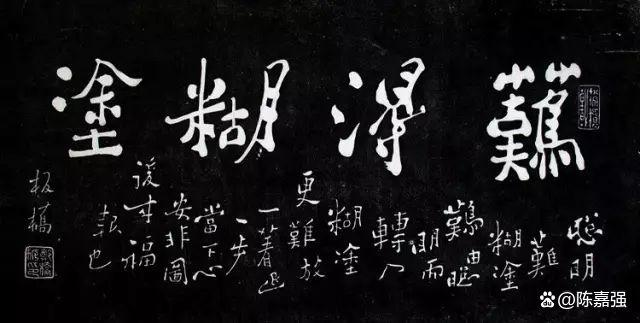 難得糊塗
聰明
難
糊塗
難由聰
明而
轉入
糊塗
更難放
一著退
一步
當下心
安非圖
後来福
報也
板橋
@陈嘉强